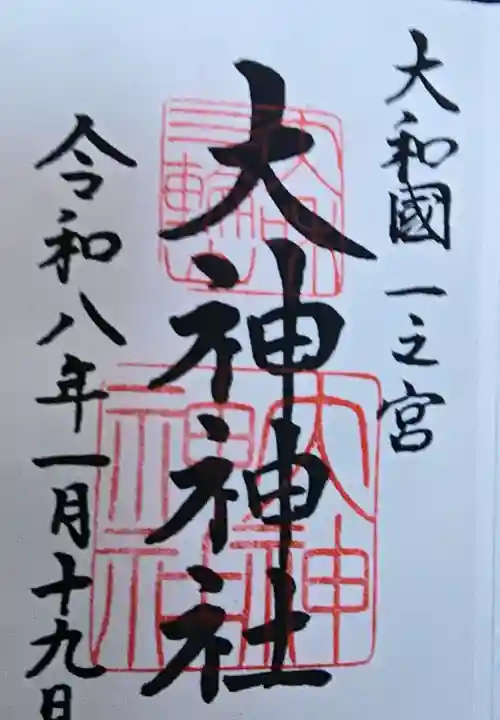 大和國一之宮
大神神社
令和八年一月十九日